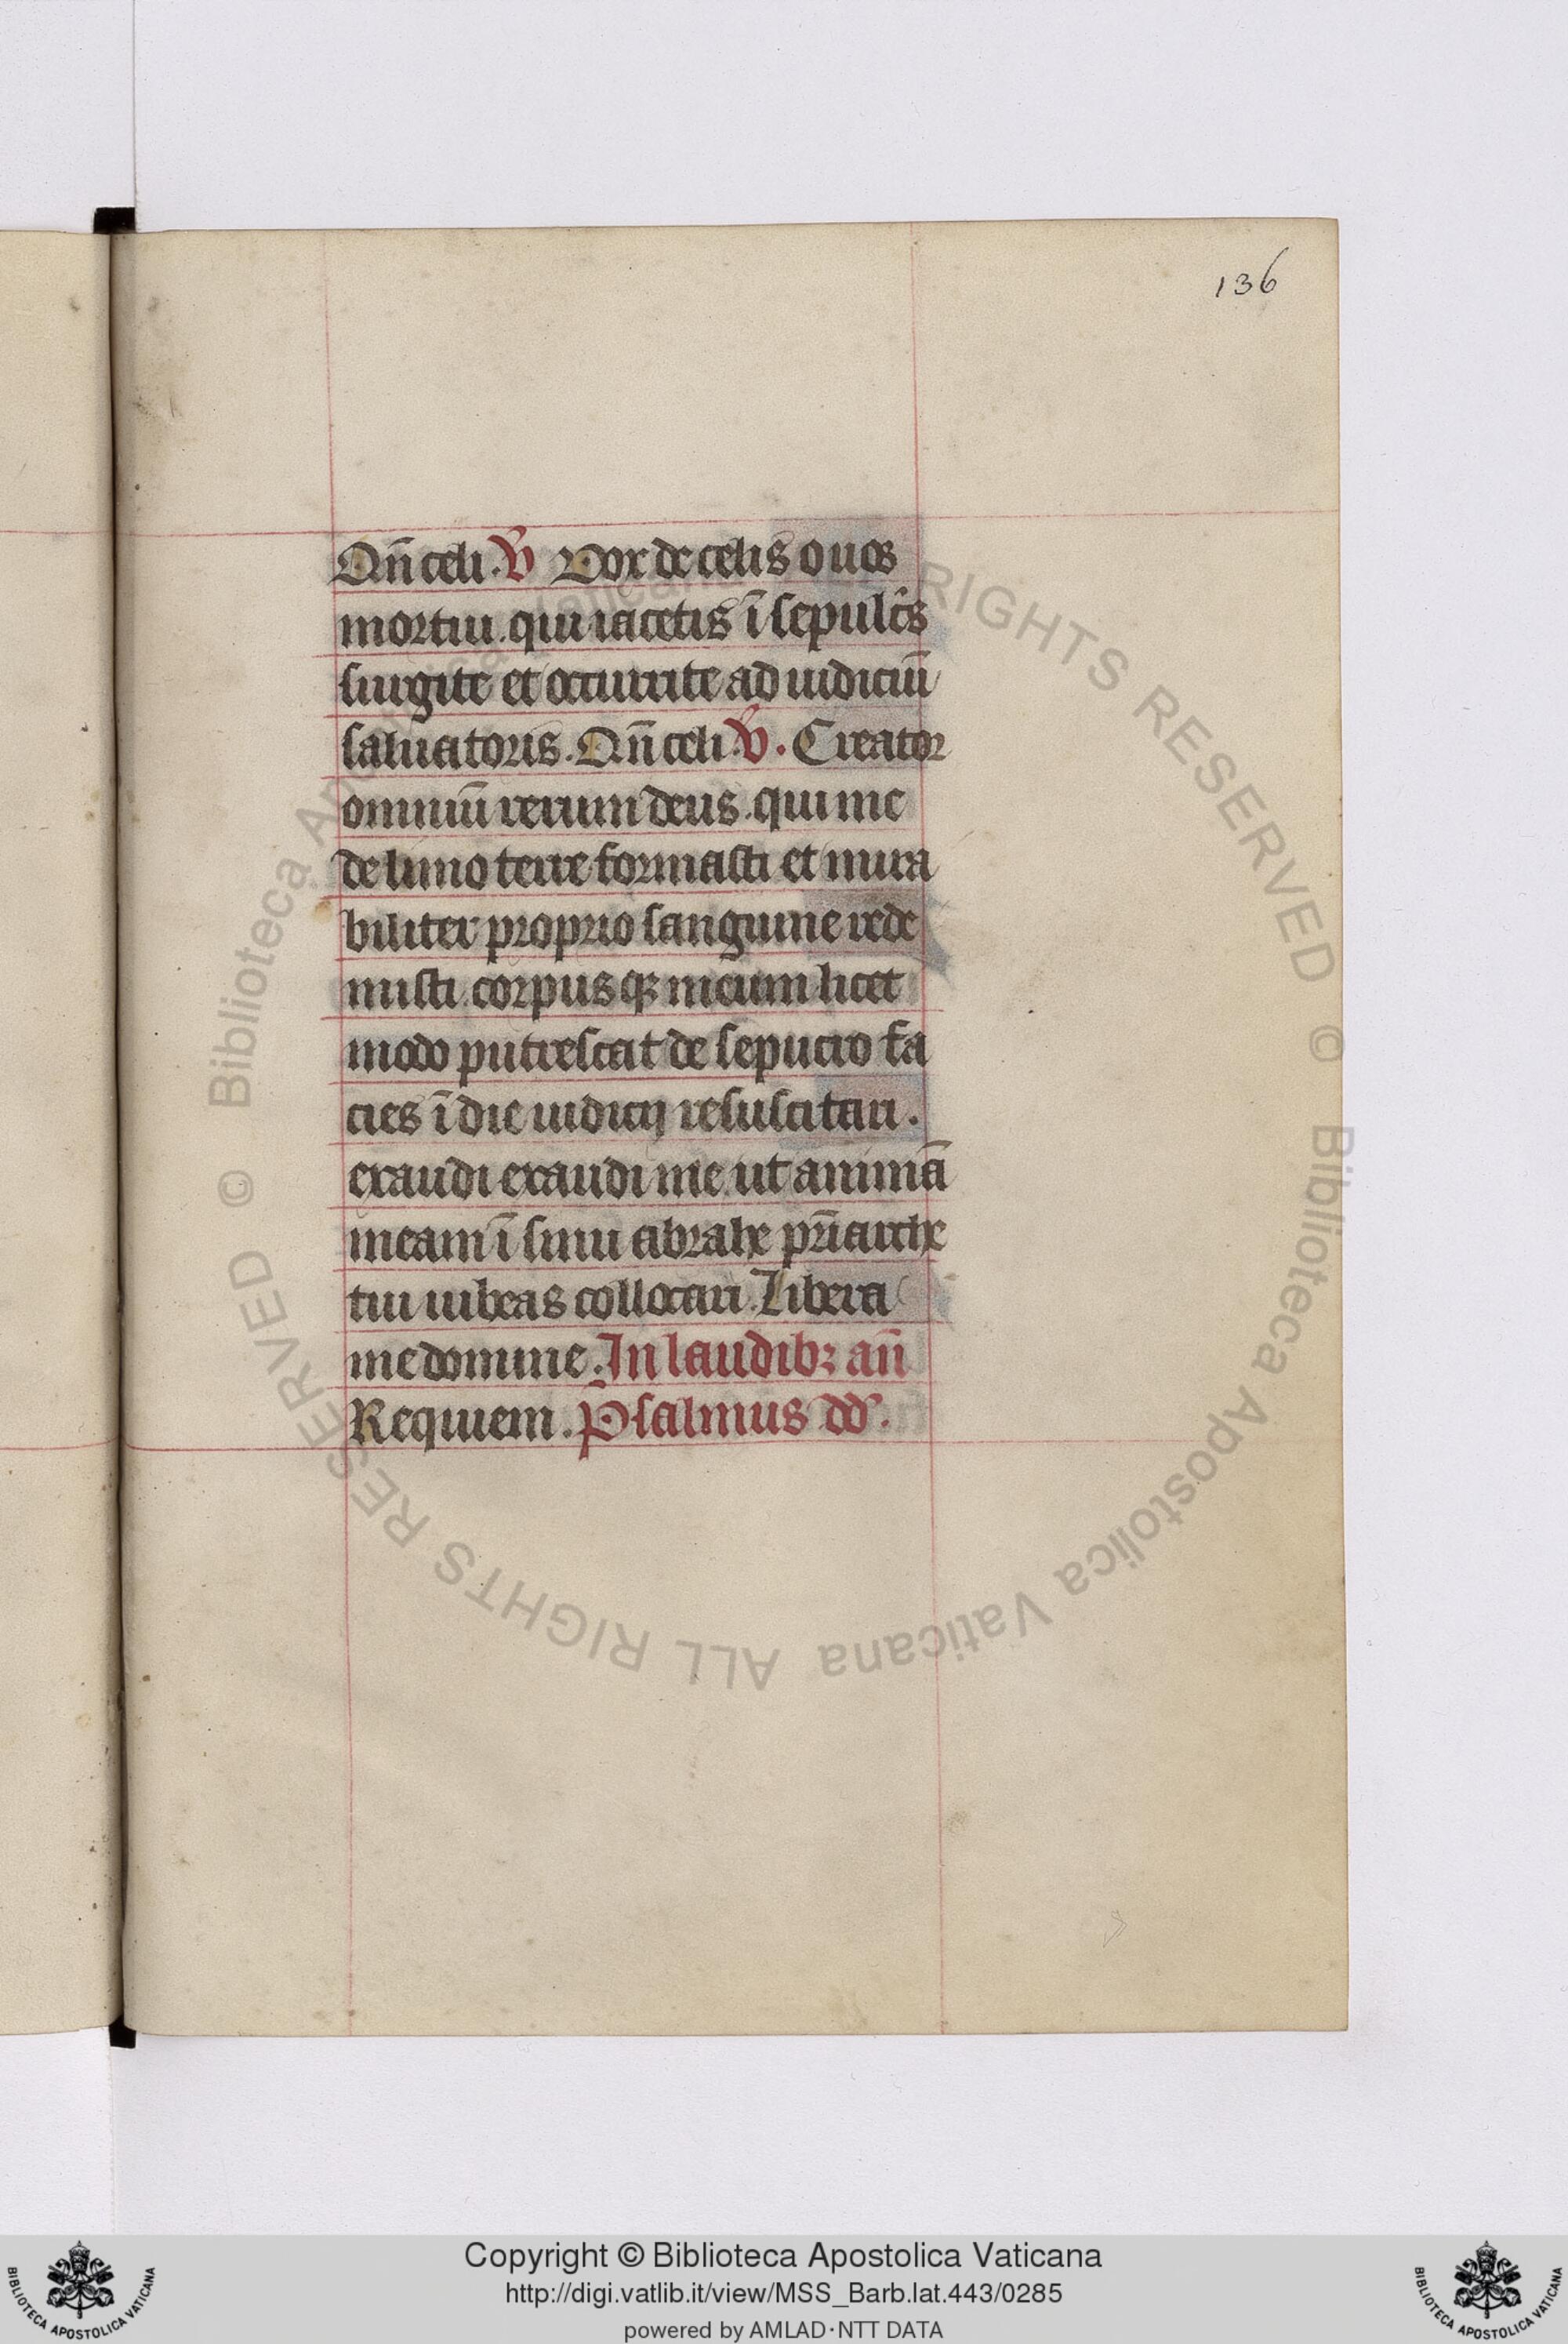 136
Qn̄ celi. V̄ Vox de celis o uos
mortui. qui iacetis ī sepulc̄s
surgite et occurrite ad iudiciū
saluatoris. Qn̄ celi. V̄. Creator
omniū rerum deus. qui me
de limo terre formasti et mira
biliter proprio sanguine rede
misti. corpusqꝫ meum licet
modo putrescat de sepucro fa
cies ī die iudicij resuscitari.
exaudi exaudi me. ut animā
meam ī sinu abrahe pr̄iarche
tui iubeas collocari. Libera
me domine. In laudibꝫ an̄
Requiem. Psalmus dd̄.
© Biblioteca Apostolica Vaticana ALL RIGHTS RESERVED © Biblioteca Apostolica Vaticana ALL RIGHTS RESERVED
BIBLIOTECA APOSTOLICA VATICANA
Copyright © Biblioteca Apostolica Vaticana
http://digi.vatlib.it/view/MSS_Barb.lat.443/0285
powered by AMLAD·NTT DATA
BIBLIOTECA APOSTOLICA VATICANA